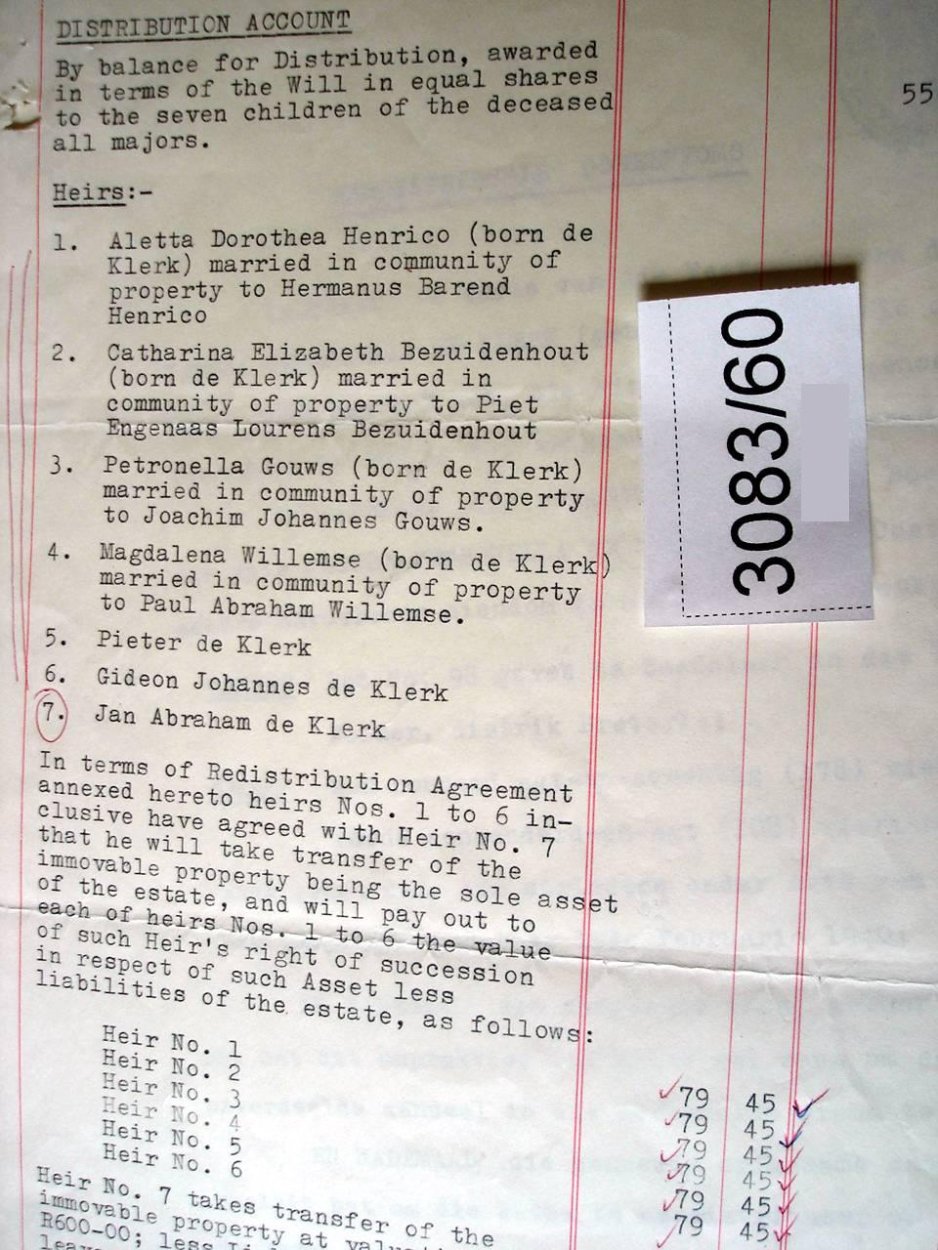 DISTRIBUTION ACCOUNT
By balance for Distribution, awarded
in terms of the Will in equal shares
to the seven children of the deceased
all majors.
55
Heirs:-
1. Aletta Dorothea Henrico (born de
Klerk) married in community of
property to Hermanus Barend
Henrico
2. Catharina Elizabeth Bezuidenhout
(born de Klerk) married in
community of property to Piet
Engenaas Lourens Bezuidenhout
3. Petronella Gouws (born de Klerk)
married in community of property
to Joachim Johannes Gouws.
4. Magdalena Willemse (born de Klerk)
married in community of property
to Paul Abraham Willemse.
5. Pieter de Klerk
6. Gideon Johannes de Klerk
7. Jan Abraham de Klerk
3083/60
In terms of Redistribution Agreement
annexed hereto heirs Nos. 1 to 6 in-
clusive have agreed with Heir No. 7
that he will take transfer of the
immovable property being the sole asset
of the estate, and will pay out to
each of heirs Nos. 1 to 6 the value
of such Heir's right of succession
in respect of such Asset less
liabilities of the estate, as follows:
Heir No. 1 79 45
Heir No. 2 79 45
Heir No. 3 79 45
Heir No. 4 79 45
Heir No. 5 79 45
Heir No. 6 79 45
Heir No. 7 takes transfer of the
immovable property at
R600-00; less